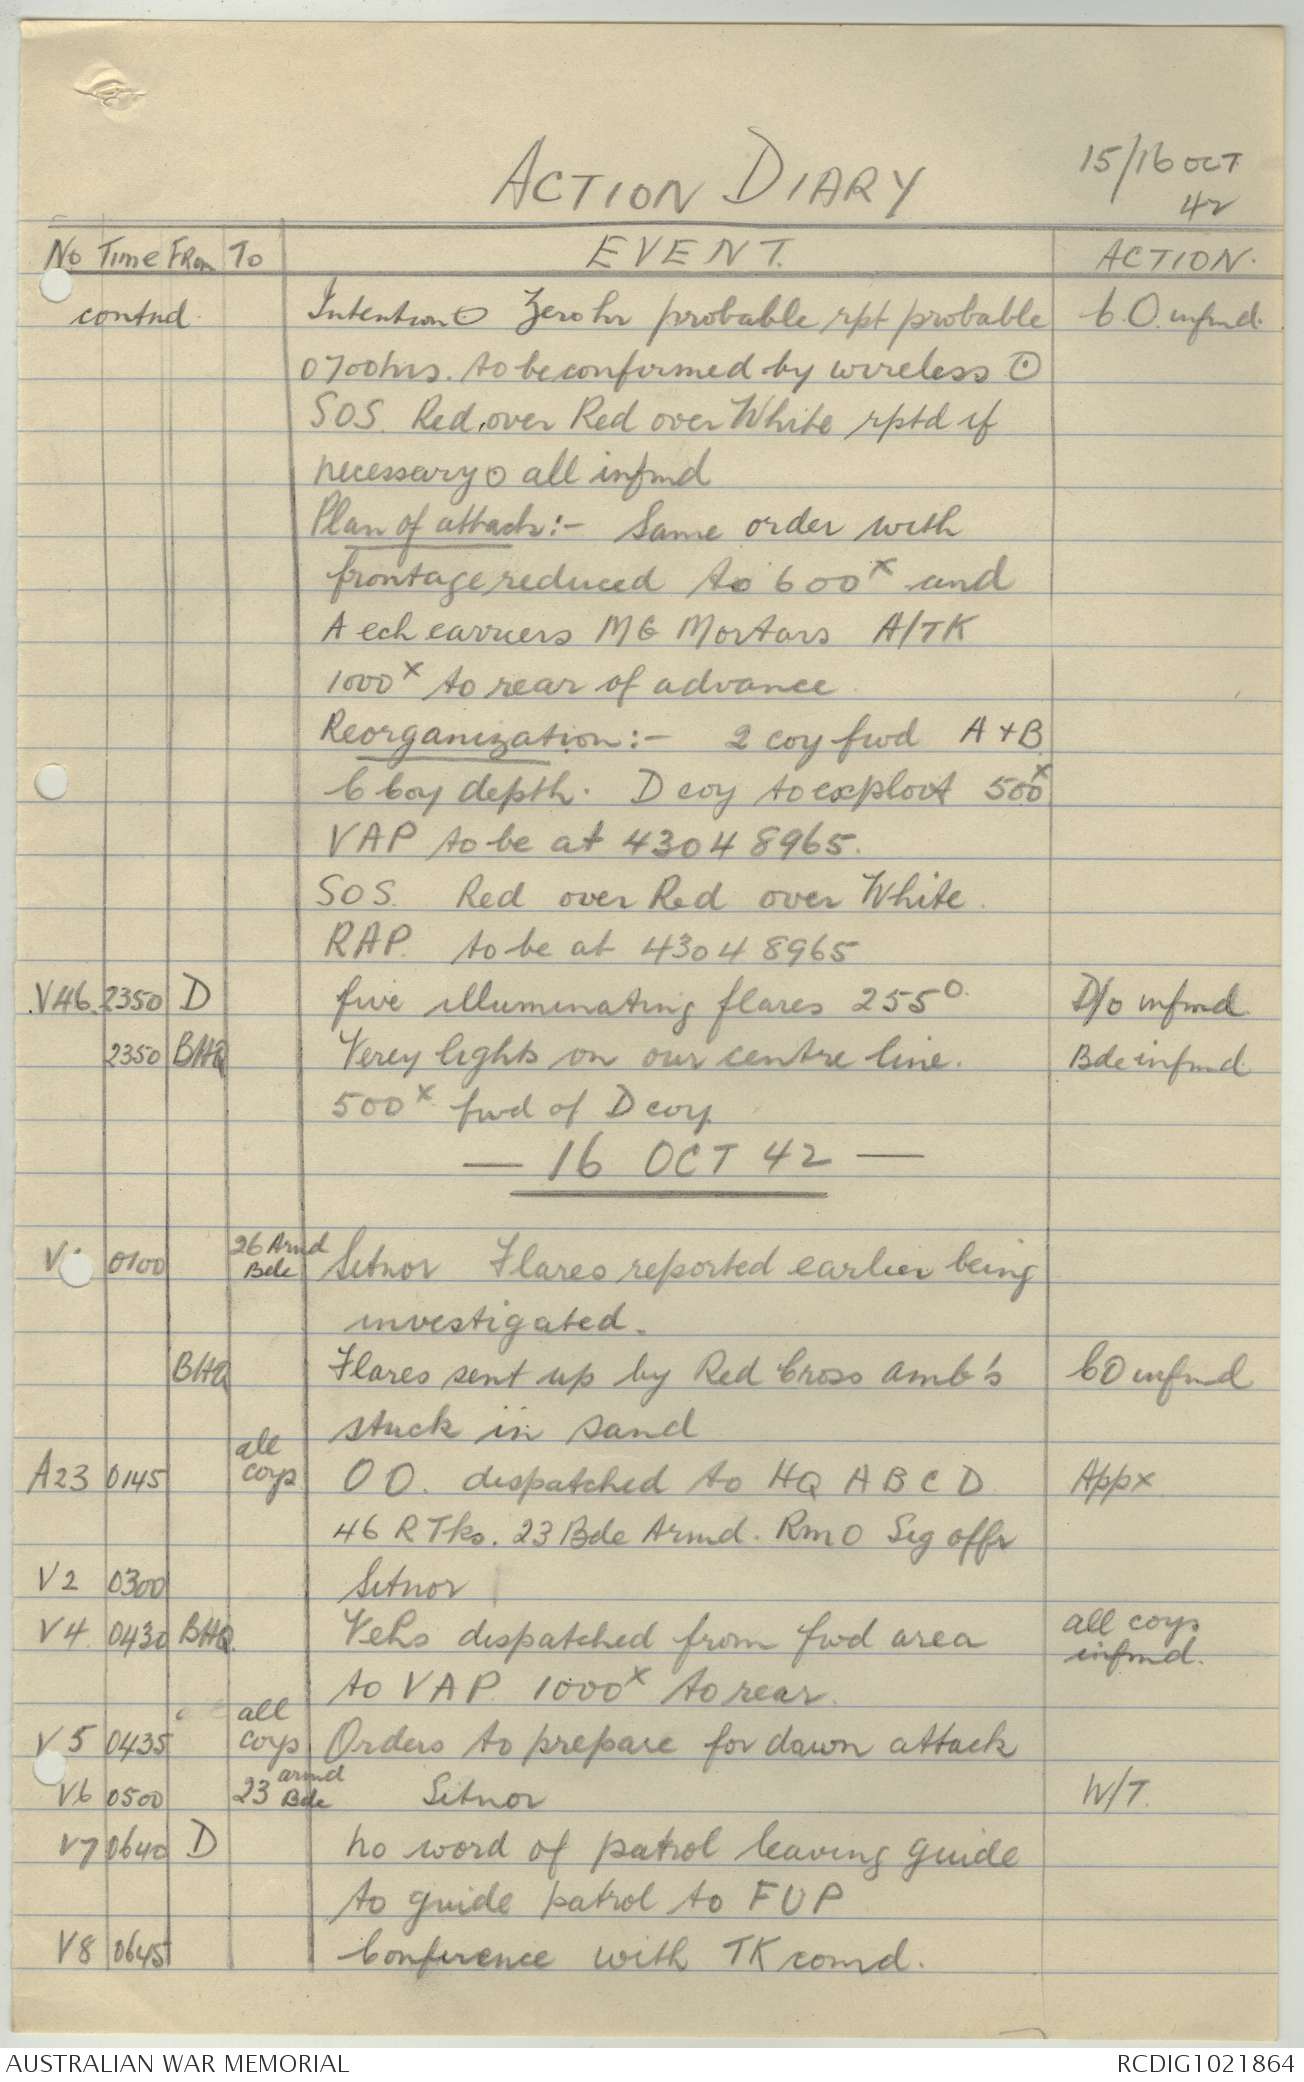 ACTION DIARY
15/16 OCT
42
No Time From To EVENT. ACTION.
contnd. Intention ⊙ Zero hr probable rpt probable C.O. infmd.
0700hrs. to be confirmed by wireless ⊙
SOS. Red over Red over White rptd if
necessary ⊙ all infmd
Plan of attack:- Same order with
frontage reduced to 600x and
A ech carriers MG Mortars A/TK
1000x to rear of advance.
Reorganization:- 2 coy fwd A + B
C Coy depth. D coy to exploit 500x
VAP to be at 43048965.
SOS. Red over Red over White.
RAP. to be at 43048965
V46. 2350 D five illuminating flares 255°. D/o infmd.
2350 BHQ Verey lights on our centre line. Bde infmd.
500x fwd of D coy
— 16 OCT 42 —
V 0100 26 Armd Bde Sitnor Flares reported earlier being
investigated.
BHQ Flares sent up by Red Cross amb's CO infmd
stuck in sand
A23 0145 all coys OO. dispatched to HQ A B C D Appx
46 R Tks. 23 Bde Armd. RMO Sig offr
V2 0300 Sitnor
V4 0430 BHQ Vehs dispatched from fwd area all coys infmd.
to VAP. 1000x to rear.
V5 0435 all coys Orders to prepare for dawn attack
V6 0500 23 armd Bde Sitnor W/T.
V7 0640 D no word of patrol leaving guide
to guide patrol to FUP
V8 0645 Conference with TK comd.
AUSTRALIAN WAR MEMORIAL RCDIG1021864